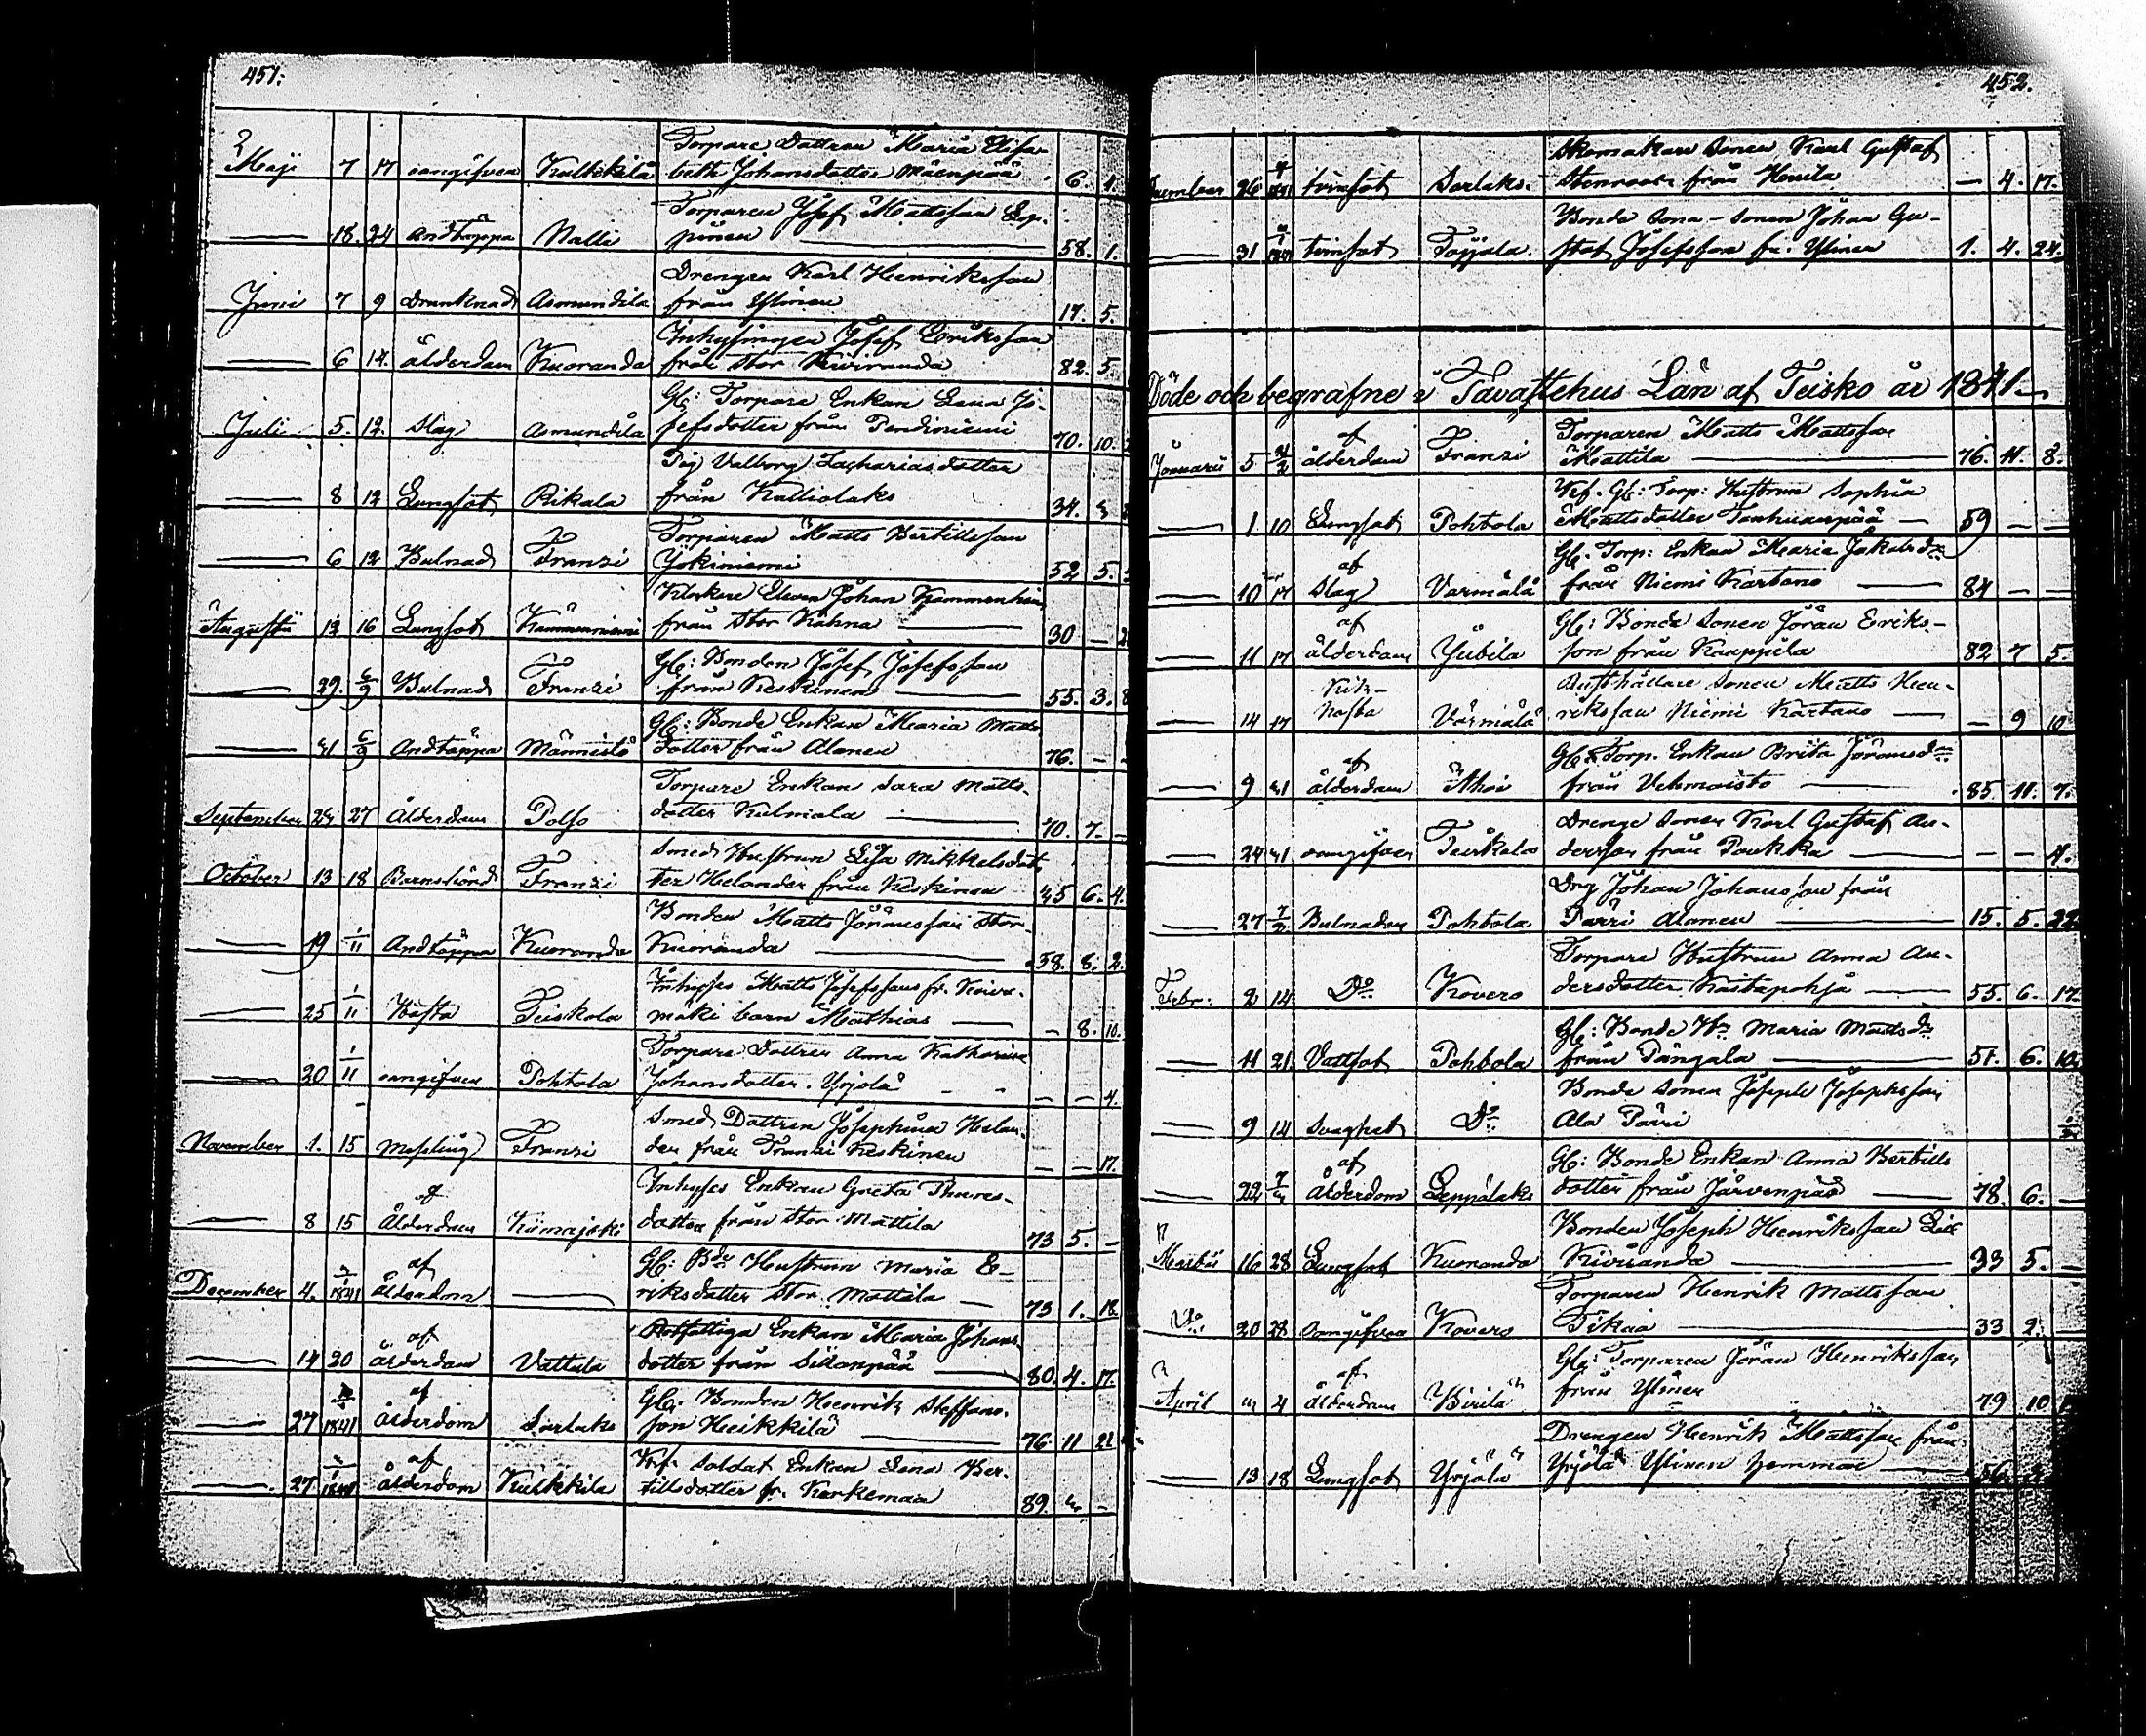 451.
Maji 7 17 oangifven Kulkkila Torpare Dottren Maria Elisa-
beth Johansdotter Mäenpää 6. 1.
18. 24 Andtäppa Nalli Torparen Josef Mattsson Lep-
pinen 58. 1.
Juni 7 9 Drunknad Asmundila Drengen Karl Henriksson
från Ylinen 17. 5.
6 14. ålderdom Kuoranda Inhysingen Josef Eriksson
från Stor Kiviranda 82. 5.
Juli 5. 12. Slag Asmundila Gl: Torpare Enkan Lena Jo-
sefsdotter från Pendiniemi 70. 10.
8 12 Lungsot Rikala Pig Valborg Zachariasdotter
från Kulliolaks 34. 3
6 12 Bulnad Franzi Torparen Matts Bertillsson
Jokiniemi 52 5.
Augusti 12 16 Lungsot Kämmenniemi Klockare Eleven Johan
från Stor Kåhna 30 —
29. 6/9 Bulnad Franzi Gl: Bonden Josef Josefsson
från Keskinen 55. 3. 8
31 6/9 Andtäppa Männistö Gl: Bonde Enkan Maria Matts
dotter från Alanen 76. —
September 24 27 Ålderdom Polso Torpare Enkan Sara Matts-
dotter Kulmala 70. 7. —
October 13 18 Barnsbörd Franzi Smeds Hustrun Lisa Mikkelsdot-
ter Helander från Keskinen 45 6. 4.
19 1/11 Andtäppa Kuoranda Bonden Matts Jöransson Stor
Kuoranda 58. 8. 2.
25 1/11 Hosta Teiskola Inhyses Matts Josefssons fr. Koivu-
mäki barn Mathias — 8. 10.
20 1/11 oangifven Pohtola Torpare Dottren Anna Katharina
Johansdotter Yrjolä — — 4.
November 1. 15 Messling Franzi Smed Dottren Josephina Helan-
der från Franzi Keskinen — — 17.
8 15 af
Ålderdom Kiimajoki Inhyses Enkan Greta Thures-
dotter från Stor Mattila 73 5. —
December 4. 3/1 1841 af
ålderdom Gl: Bde Hustrun Maria E-
riksdotter Stor Mattila 73 1. 18.
14 20 af
ålderdom Vattula Rotfattiga Enkan Maria Johans-
dotter från Sillanpää 80. 4. 17.
27 1841 af
ålderdom Sarlaks Gl: Bonden Henrik Steffans-
son Heikkilä 76. 11 21
27 af
ålderdom Kulkkila Krf. Soldat Enkan Lena Ber-
tillsdotter fr. Karkemaa 89. 3 —
452.
26 1841 trinsot Sarlaks Skomakare Sonen Karl Gustaf
Stenroos från Heuila — 4. 17.
31 1841 trinsot Toijala Bonde Sona-Sonen Johan Gu-
staf Josefsson fr. Ylinen 1. 4. 24.
Döde och begrafne i Tavastehus Län af Teisko år 1841
Januarii 5. 31/2 af
ålderdom Franzi Torparen Matts Mattsson
Mattila 76. 11. 8.
1 10 Lungsot Pohtola Krf. Gl: Torp: Hustrun Sophia
Mattsdotter Tanhuanpää 59 — —
10 17 af
Slag Varmälä Gl. Torp: Enkan Maria Jakobsd:r
från Niemi Kartano 84 — —
11 17 af
ålderdom Yübila Gl: Bonde Sonen Jöran Eriks-
son från Kauppila 82 7 5.
14 17 Kik-
hosta Värmälä Rusthållare Sonen Matts Hen-
riksson Niemi Kartano — 9 10
9 31 af
ålderdom Gl. Torp. Enkan Brita Jöransd:r
från Vehmaisto 85. 11. 7.
24 31 oangifven Teiskola Drenge Sonen Karl Gustaf An-
dersson från Poukka — — 4.
27 7/2 Bulnaden Pohtola Drg Johan Johansson från
Parri Alanen 15. 5. 22.
Febr: 2 14 D:o Kovero Torpare Hustrun Anna An-
dersdotter Kiitapohja 55. 6. 17.
11 21. Vattsot Pohtola Gl: Bonde H:n Maria Mattsd:r
från Pängala 51. 6. 10
9 14 Svaghet D:o Bonde Sonen Joseph Josephsson
Ala Pärri
22 7/3 af
Ålderdom Leppälaks Gl: Bonde Enkan Anna Bertills
dotter från Järvenpää 78. 6. —
Martii 16 28 Lungsot Kuoranda Bonden Joseph Henriksson Lill
Kiviranda 33 5. —
D:o 20 28 oangifven Kovero Torparen Henrik Mattsson
Tikaa 33 2. —
April 3 4 af
ålderdom Birilä Gl: Torparen Jöran Henriksson
från Ylinen 79 10
13 18 Lungsot Yrjölä Drengen Henrik Mattsson från
Yrjölä Ylinen hemman 56.